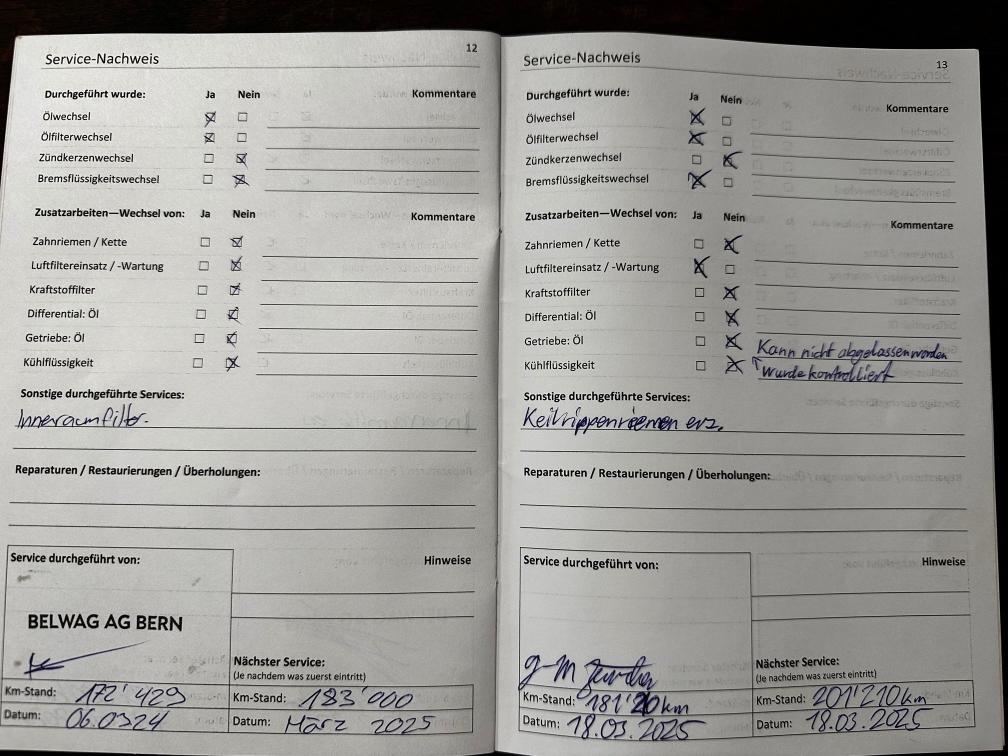 12
Service-Nachweis
Durchgeführt wurde: Ja Nein Kommentare
Ölwechsel
Ölfilterwechsel
Zündkerzenwechsel
Bremsflüssigkeitswechsel
Zusatzarbeiten—Wechsel von: Ja Nein Kommentare
Zahnriemen / Kette
Luftfiltereinsatz / -Wartung
Kraftstoffilter
Differential: Öl
Getriebe: Öl
Kühlflüssigkeit
Sonstige durchgeführte Services:
Inneraumfilter.
Reparaturen / Restaurierungen / Überholungen:
Service durchgeführt von: Hinweise
BELWAG AG BERN
Nächster Service:
(Je nachdem was zuerst eintritt)
Km-Stand: 172'429 Km-Stand: 183'000
Datum: 06.0324 Datum: März 2025
13
Service-Nachweis
Durchgeführt wurde: Ja Nein Kommentare
Ölwechsel
Ölfilterwechsel
Zündkerzenwechsel
Bremsflüssigkeitswechsel
Zusatzarbeiten—Wechsel von: Ja Nein Kommentare
Zahnriemen / Kette
Luftfiltereinsatz / -Wartung
Kraftstoffilter
Differential: Öl
Getriebe: Öl
Kann nicht abgelassen worden
Kühlflüssigkeit
wurde kontrolliert
Sonstige durchgeführte Services:
Keilrippenriemen erz.
Reparaturen / Restaurierungen / Überholungen:
Service durchgeführt von: Hinweise
Nächster Service:
(Je nachdem was zuerst eintritt)
g-m
Km-Stand: km Km-Stand: 201'210km
Datum: 18.03.2025 Datum: 18.03.2025